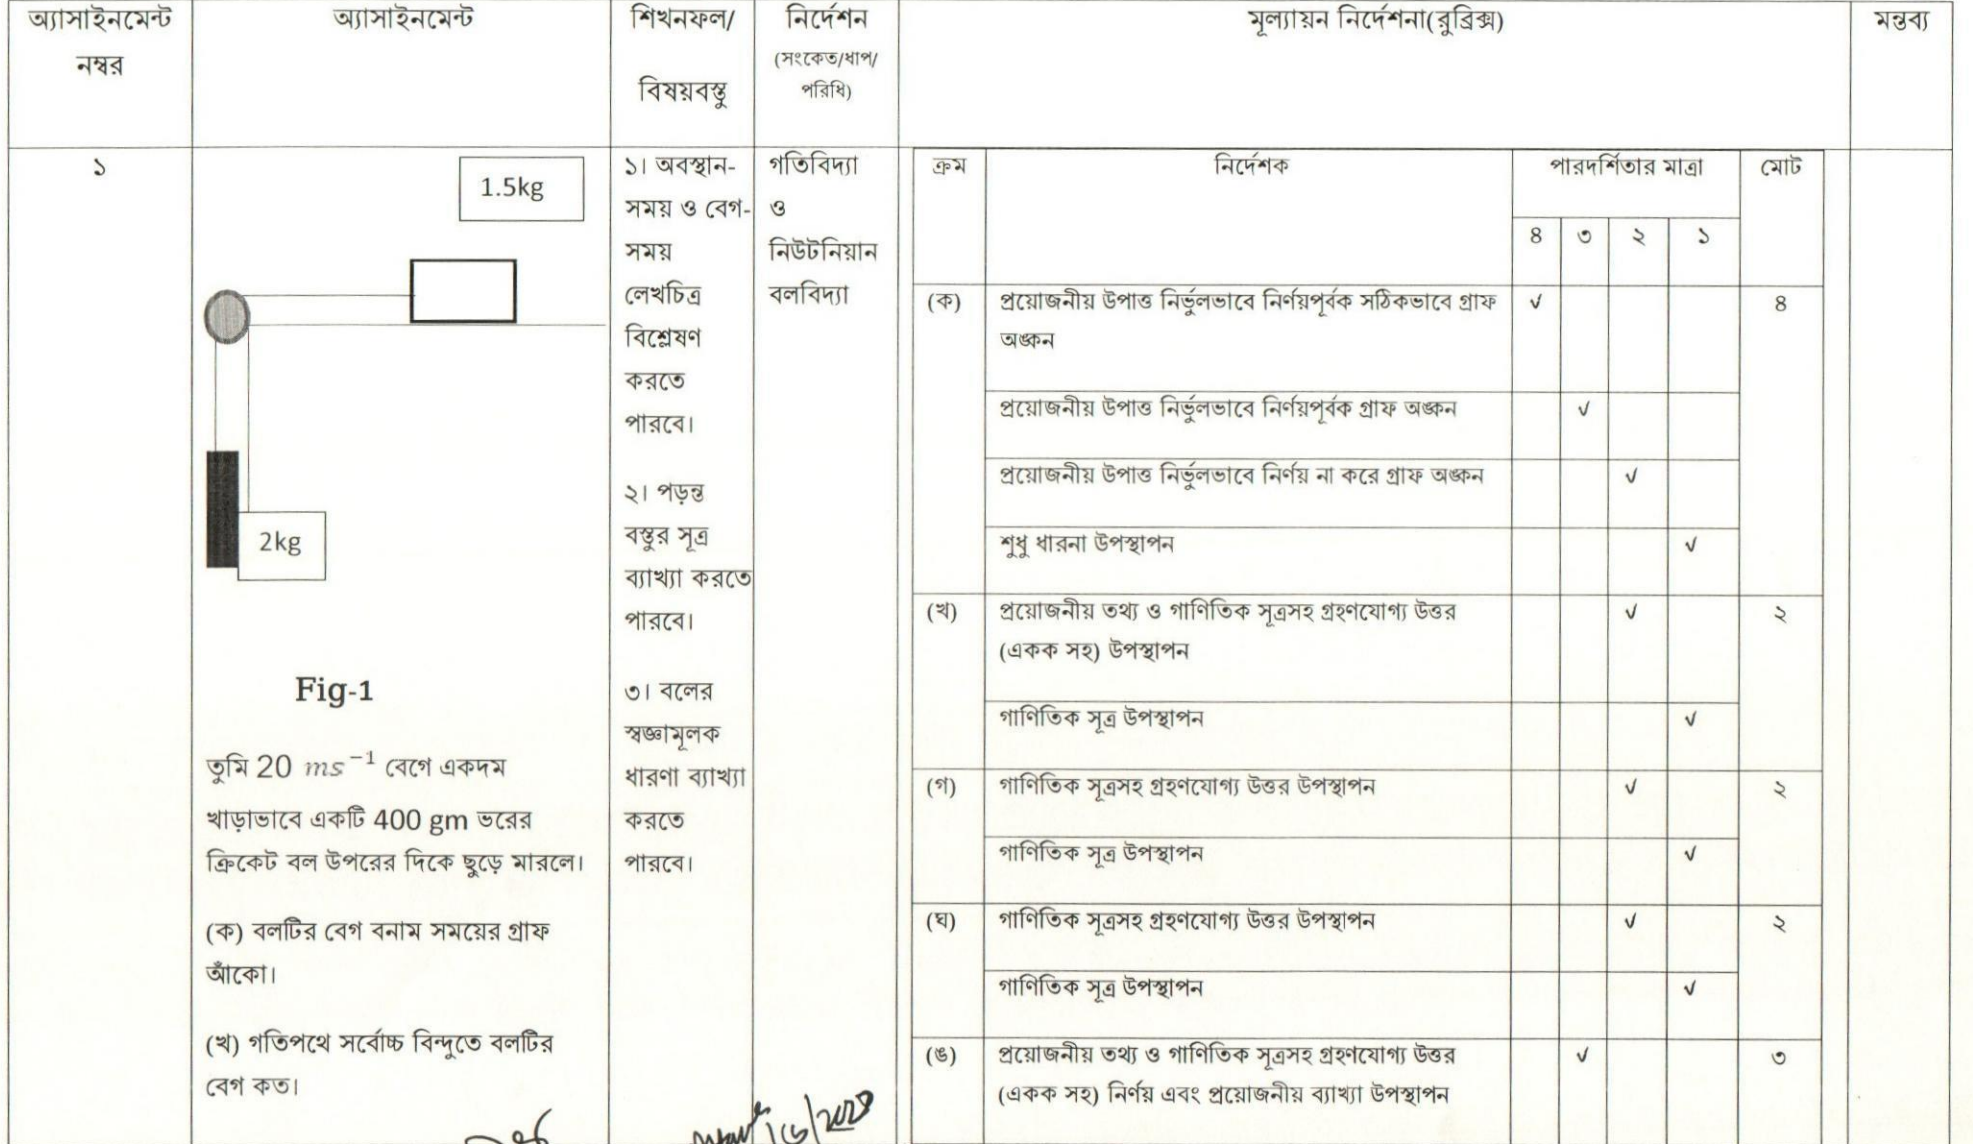 অ্যাসাইনমেন্ট
নম্বর
অ্যাসাইনমেন্ট
শিখনফল/
বিষয়বস্তু
নির্দেশন
(সংকেত/ধাপ/
পরিধি)
মূল্যায়ন নির্দেশনা(রুব্রিক্স)
মন্তব্য
১
1.5kg
2kg
Fig-1
তুমি 20 ms⁻¹ বেগে একদম
খাড়াভাবে একটি 400 gm ভরের
ক্রিকেট বল উপরের দিকে ছুড়ে মারলে।
(ক) বলটির বেগ বনাম সময়ের গ্রাফ
আঁকো।
(খ) গতিপথে সর্বোচ্চ বিন্দুতে বলটির
বেগ কত।
১। অবস্থান-
সময় ও বেগ-
সময়
লেখচিত্র
বিশ্লেষণ
করতে
পারবে।
২। পড়ন্ত
বস্তুর সূত্র
ব্যাখ্যা করতে
পারবে।
৩। বলের
স্বজ্ঞামূলক
ধারণা ব্যাখ্যা
করতে
পারবে।
গতিবিদ্যা
ও
নিউটনিয়ান
বলবিদ্যা
ক্রম নির্দেশক পারদর্শিতার মাত্রা মোট
৪ ৩ ২ ১
(ক) প্রয়োজনীয় উপাত্ত নির্ভুলভাবে নির্ণয়পূর্বক সঠিকভাবে গ্রাফ √ ৪
অঙ্কন
প্রয়োজনীয় উপাত্ত নির্ভুলভাবে নির্ণয়পূর্বক গ্রাফ অঙ্কন √
প্রয়োজনীয় উপাত্ত নির্ভুলভাবে নির্ণয় না করে গ্রাফ অঙ্কন √
শুধু ধারনা উপস্থাপন √
(খ) প্রয়োজনীয় তথ্য ও গাণিতিক সূত্রসহ গ্রহণযোগ্য উত্তর √ ২
(একক সহ) উপস্থাপন
গাণিতিক সূত্র উপস্থাপন √
(গ) গাণিতিক সূত্রসহ গ্রহণযোগ্য উত্তর উপস্থাপন √ ২
গাণিতিক সূত্র উপস্থাপন √
(ঘ) গাণিতিক সূত্রসহ গ্রহণযোগ্য উত্তর উপস্থাপন √ ২
গাণিতিক সূত্র উপস্থাপন √
(ঙ) প্রয়োজনীয় তথ্য ও গাণিতিক সূত্রসহ গ্রহণযোগ্য উত্তর √ ৩
(একক সহ) নির্ণয় এবং প্রয়োজনীয় ব্যাখ্যা উপস্থাপন